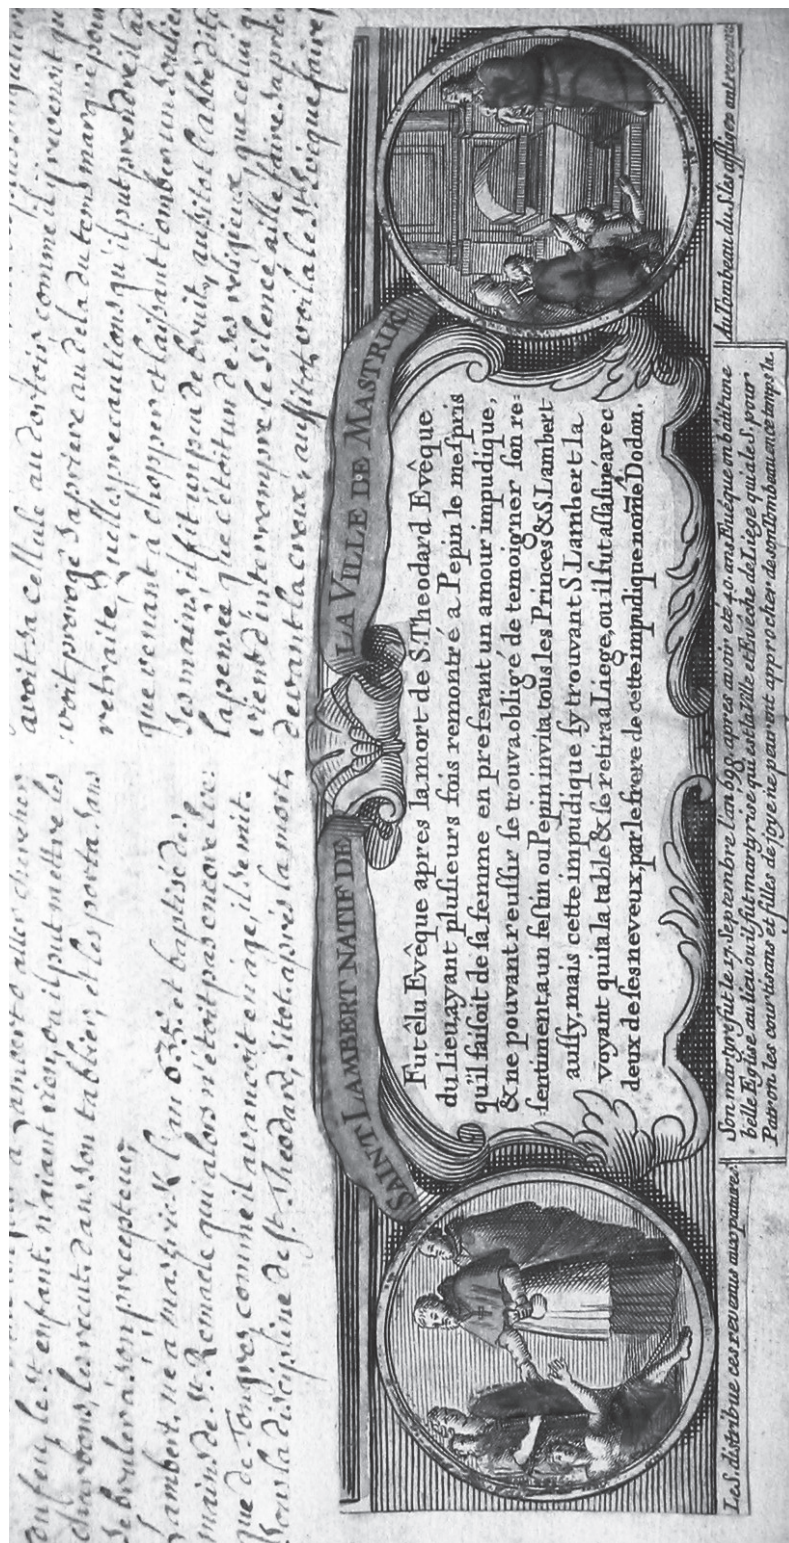 a Lambert d aller chercher
du feu, le st enfant n'aiant rien, ou il put mettre les
charbons, les recut dans son tablier, et les porta sans
se bruler a son precepteur
Lambert, né a mastrick l'an 635. et baptisé des
mains de St. Remacle qui alors n'étoit pas encore Eve:
que de Tongres comme il avancoit en age, il se mit
Sous la discipline de St. Theodard, sitot aprés la mort,
avoit sa cellule au dortoir, comme il y revenoit qu
voit prorogé sa priere au dela du tems marqué pour
retraite, quelles precautions qu'il put prendre il
que venant a chopper et laisant tomber un soulier
ses mains il fit un peu de bruit, ausitot l'abbé dit
la pensée que c'étoit un de ses religieux, que celui q
vient d'interrompre le silence aille faire sa priere
devant la croix, ausitot voila le St. Evique faire
SAINT LAMBERT NATIF DE LA VILLE DE MASTRIK
Fut élu Evêque apres la mort de S. Theodard Evêque
du lieu, ayant plusieurs fois remontré a Pepin le mespris
qu'il faisoit de sa femme en preferant un amour impudique,
& ne pouvant reussir se trouva obligé de temoigner son re=
sentiment, a un festin ou Pepin invita tous les Princes & S. Lambert
aussy, mais cette impudique s'y trouvant S Lambert la
voyant quita la table & se retira a Liege, ou il fut assassiné avec
deux de ses neveux, par le frere de cette impudique nom̃é Dodon.
Le S. distribue ces revenus aux pauures.
Son martyre fut le 17. Septembre l'an 698. apres avoir eté 40. ans Euéque on batit une
belle Eglise au lieu ou il fut martyrisé qui est la Ville et Evéche de Liége qui a le S. pour
Patron les courtisans et filles de joye ne peuvent approcher de son Tombeau en ce temps la.
Au Tombeau du S. les affliger ont recours